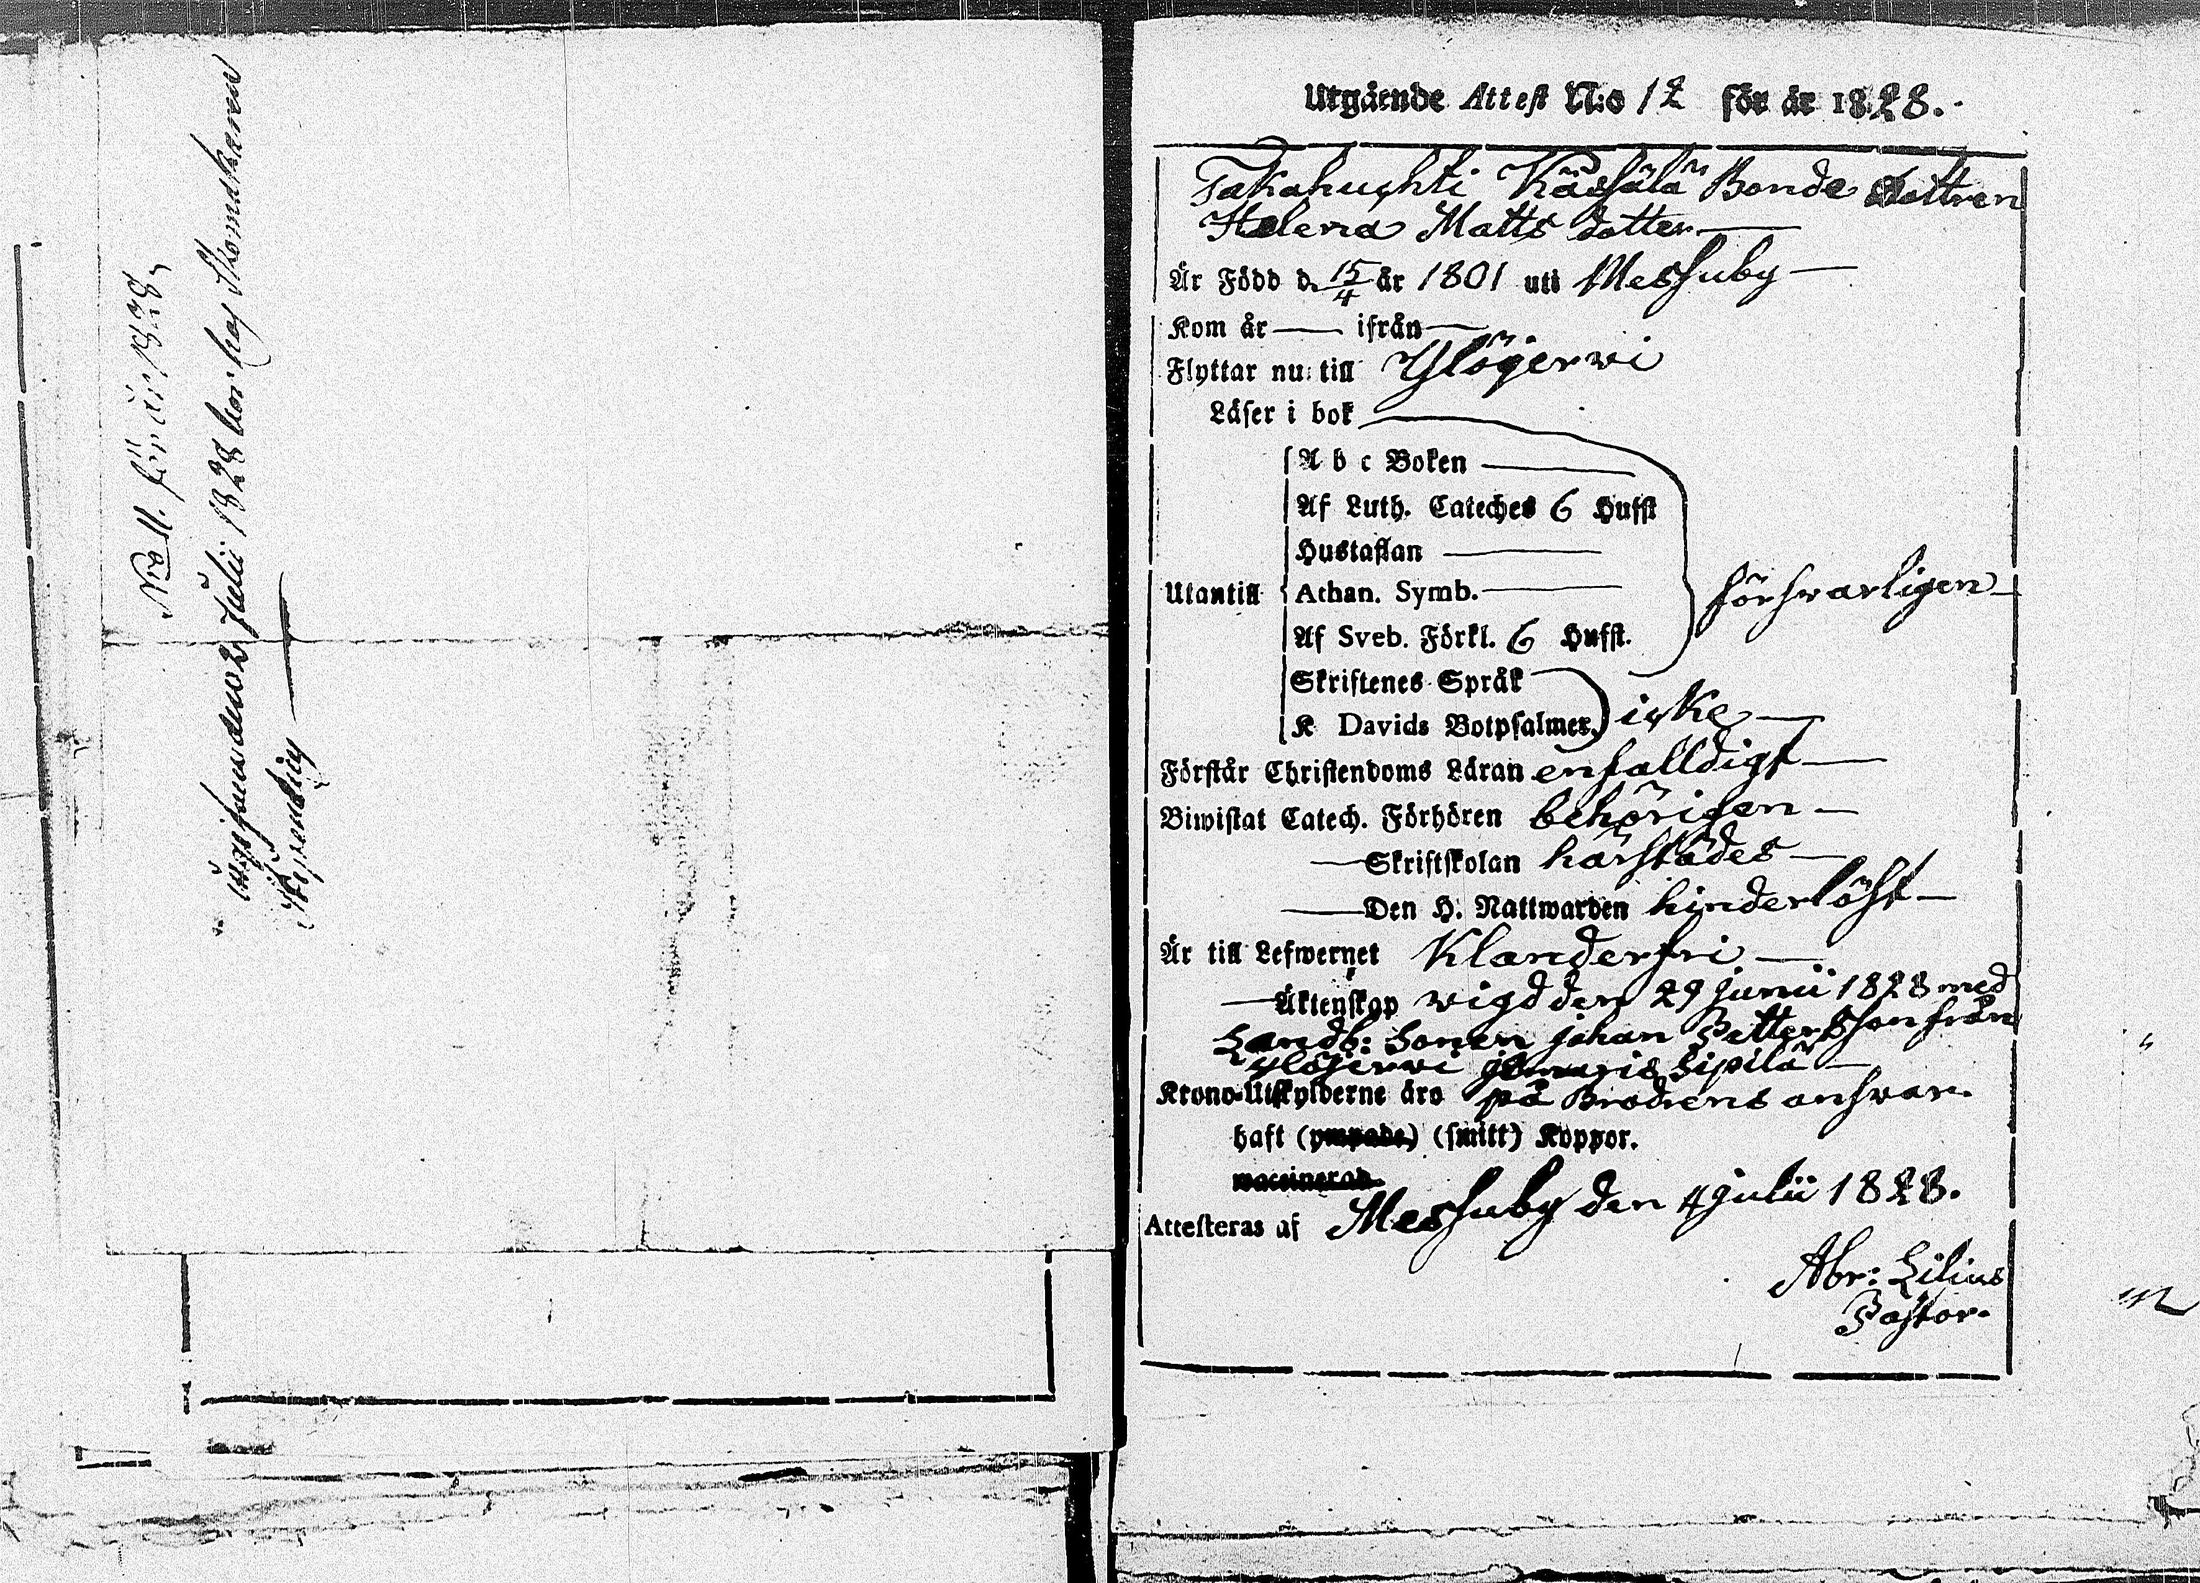 No 11. för år 1828,
Julii 1828 hos
Utgående Attest N:o 12 för år 1828.
Takahuhti Kässälä Bonde dottren
Helena Matts dotter
Är Född d. 15/4 år 1801 uti Messuby
Kom år — ifrån —
Flyttar nu till Ylöjerwi
Läser i bok
A b c Boken
Af Luth. Cateches 6 Hufst
Hustaflan
Utantill Athan. Symb. försvarligen
Af Sveb. Förkl. 6 Hufst.
Skriftenes Språk
K Davids Botpsalmer. icke
Förstår Christendoms Läran enfalldigt
Biwistat Catech. Förhören behörigen
— Skriftskolan härstädes
— Den H. Nattwarden hinderlöst
Är till Lefwernet Klanderfri
— Äktenskap wigd den 29 junii 1828 med
Landb: Sonen johan Pettersson från
Ylöjerwi Sipilä
Krono-Utskylderne äro på Brodrens answar.
haft (ympade) (smitt) Koppor.
waccinerad.
Attesteras af Messuby den 4 julii 1828.
Abr: Lilius
Pastor.